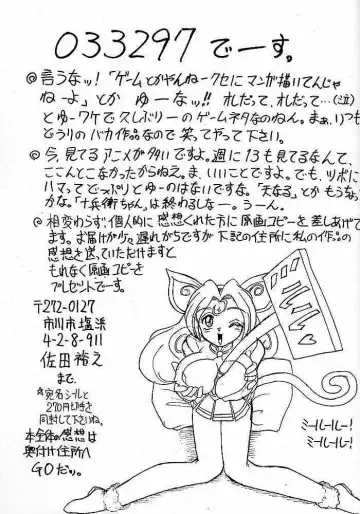 033297 でーす。
◎言うなッ!「ゲームとかやんねークセにマンガ描いてんじゃ
ねーよ」とか ゆーなッ!! オレだって、オレだって…(泣)
とゆーワケで久しぶりーのゲームネタなのねん。まぁ、いつも
どうりのバカ作品なので笑ってやって下さい。
◎今、見てるアニメが多いですよ。週に13も見てるなんて、
ここんとこなかったからねえ。ま、いいことですよ。でも、ツボに
ハマってどっぷりとゆーのはないですな。「天なる」とかもうな
かな。「十兵衛ちゃん」は終わるしなー。うーん。
◎相変わらず、個人的に感想くれた方に原画コピーを差しあげて
ます。お届けが少々遅れからですが下記の住所に私の作品の
感想を送っていただけますと
もれなく原画コピーを
プレゼットでーす。
〒272-0127
市川市塩浜
4-2-8-911
佐田裕之
まで、
☆宛名シールと
270円切手を
同封して下さいね。
本全体の感想は
奥付け住所へ
GOだッ。
ミールールー!
ミールールー!